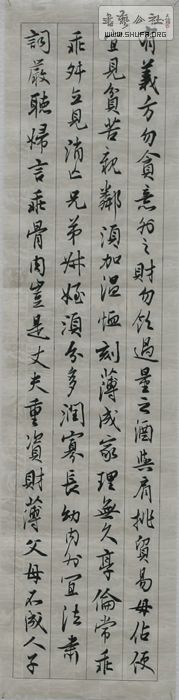 書藝公社
WWW.SHUFA.ORG
有義方勿貪意外之財勿飲過量之酒與肩挑貿易毋佔便
宜見貧苦親鄰須加温恤刻薄成家理無久享倫常乖
乖舛立見消亡兄弟叔姪須分多潤寡長幼內外宜法肅
詞嚴聽婦言乖骨肉豈是丈夫重資財薄父母不成人子